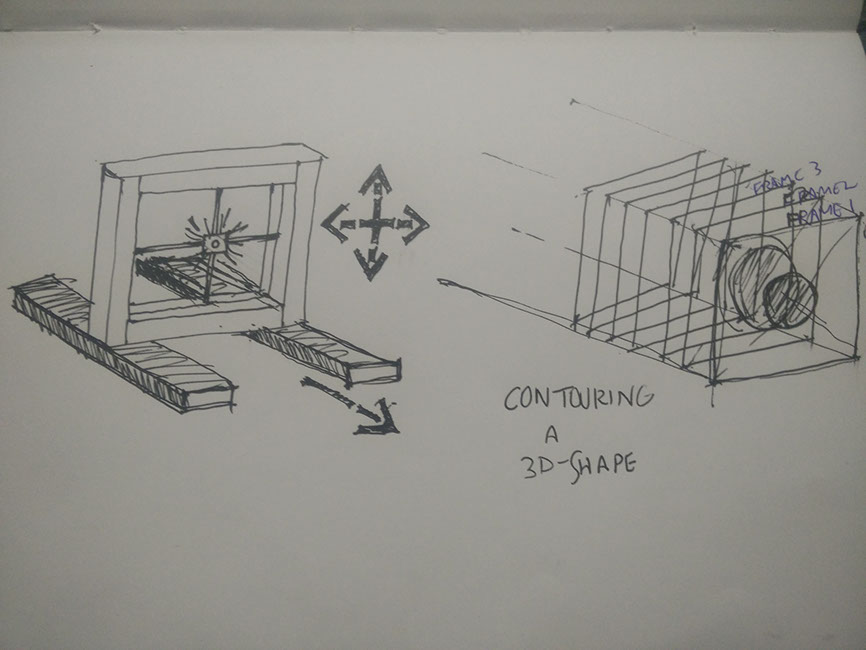 FRAME 3
FRAME 2
FRAME 1
CONTOURING
A
3D-SHAPE